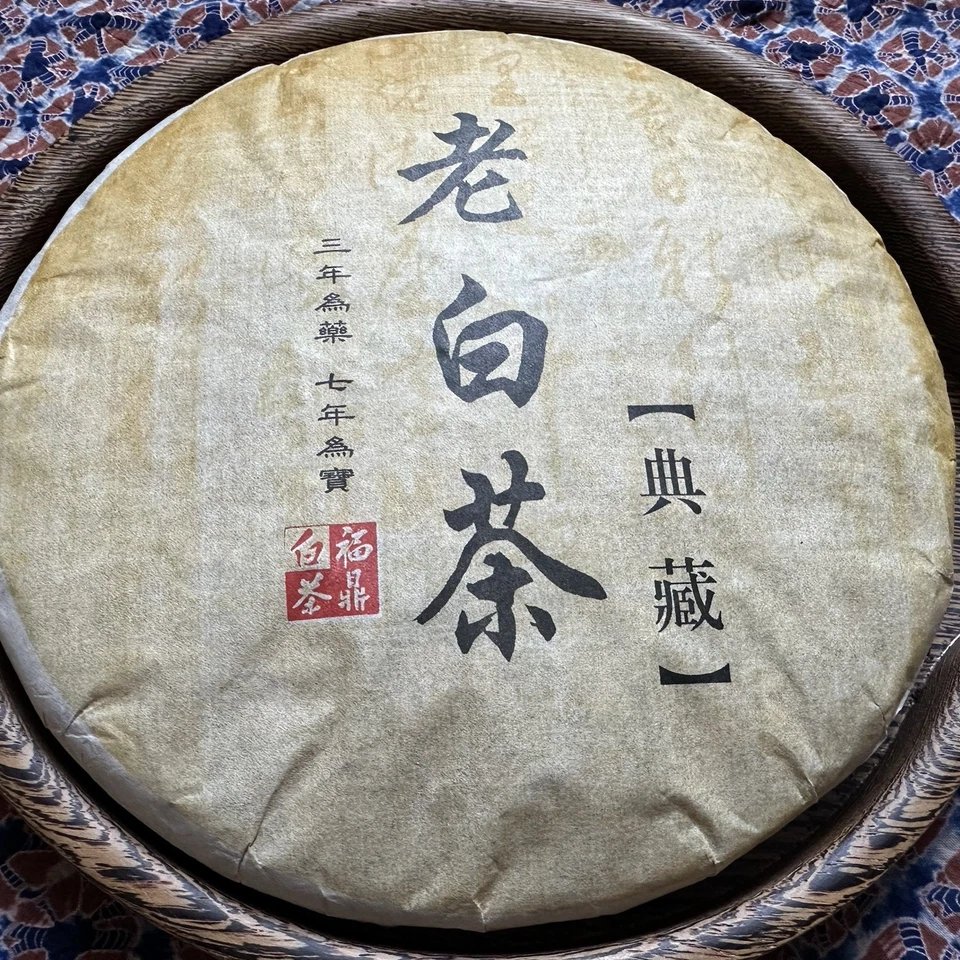 老白茶
【典藏】
三年為藥 七年為寶
福鼎
白茶